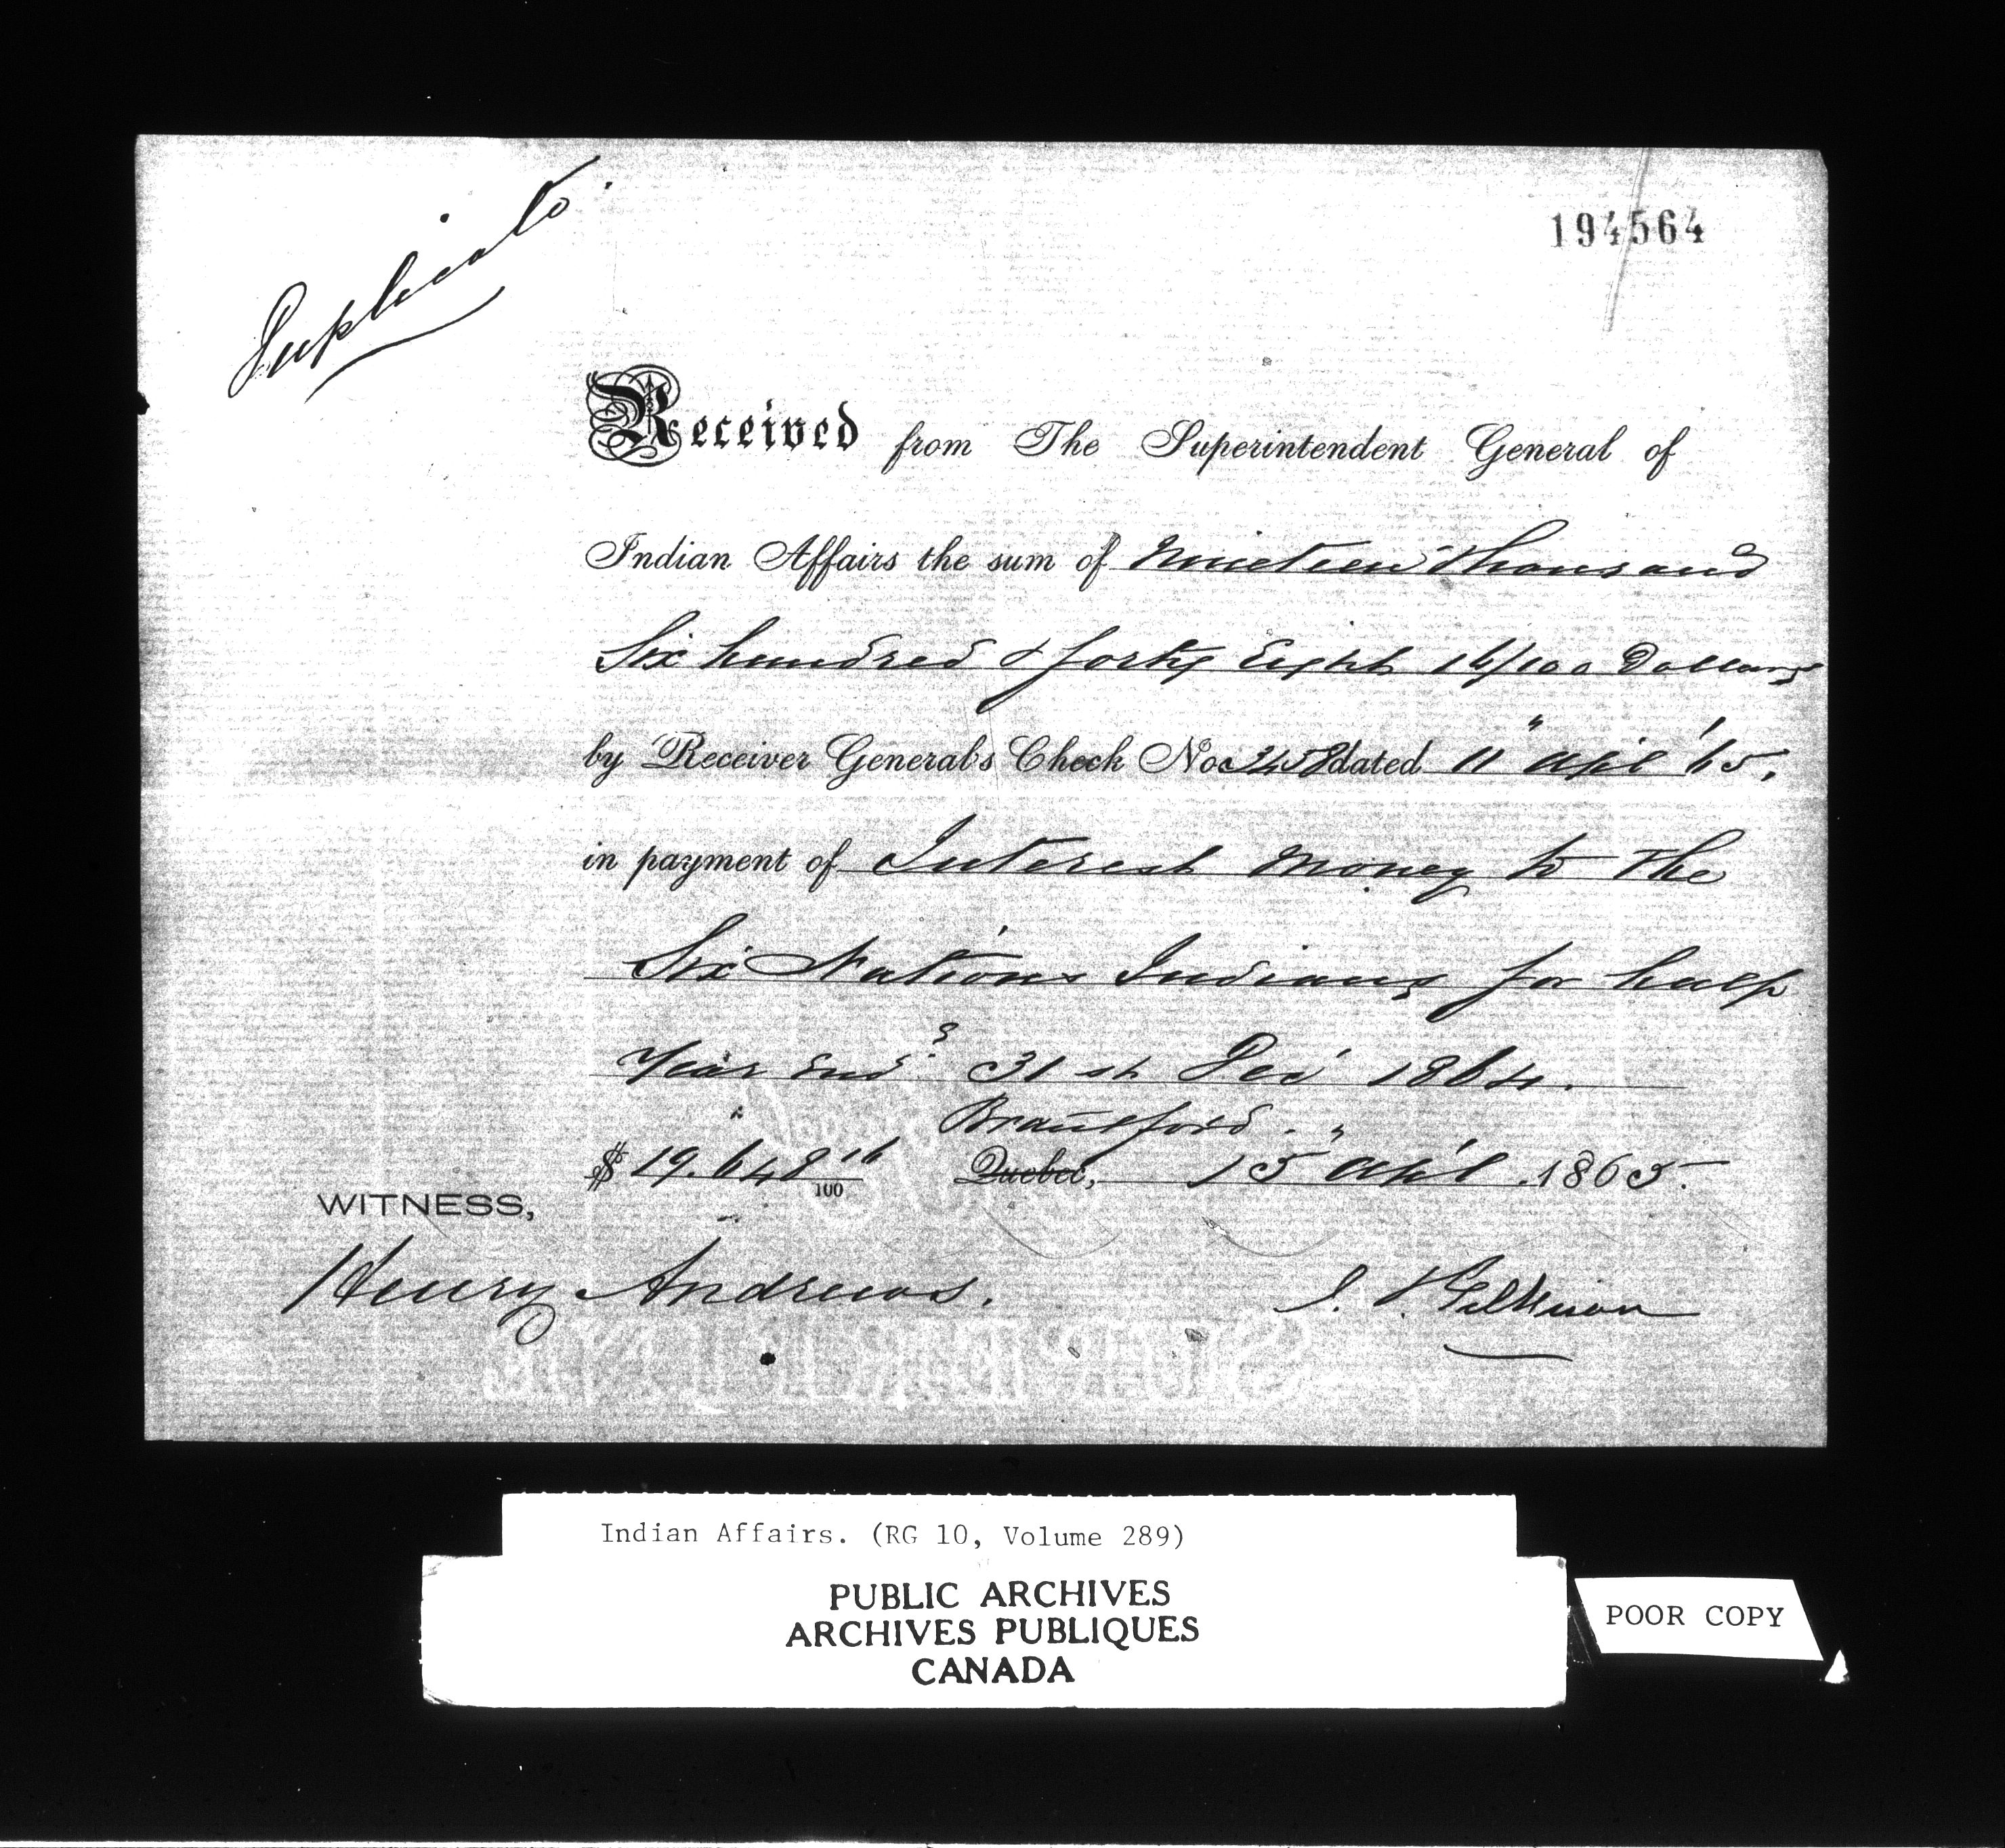 Duplicate
194564
Received from The Superintendent General of
Indian Affairs the sum of Nineteen Thousand
Six hundred & forty Eight 16/100 Dollars
by Receiver General's Check No 3458 dated 11" Apl '65.
in payment of Interest Money to the
Six Nations Indians for half
Year End.g 31st Dec' 1864.
Brantford
$ 19.648 16/100 Quebec, 15" Apl 1865.
WITNESS,
Henry Andrews. J. T. Gilkison
SUPERFINE
Indian Affairs. (RG 10, Volume 289)
PUBLIC ARCHIVES
ARCHIVES PUBLIQUES
CANADA
POOR COPY